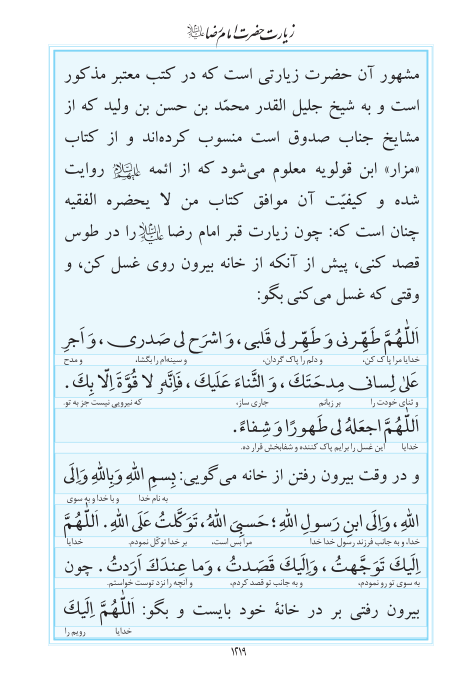 زیارت حضرت امام رضا علیه‌السلام
مشهور آن حضرت زیارتی است که در کتب معتبر مذکور
است و به شیخ جلیل القدر محمّد بن حسن بن ولید که از
مشایخ جناب صدوق است منسوب کرده‌اند و از کتاب
«مزار» ابن قولویه معلوم می‌شود که از ائمه علیهم‌السلام روایت
شده و کیفیّت آن موافق کتاب من لا یحضره الفقیه
چنان است که: چون زیارت قبر امام رضا علیه‌السلام را در طوس
قصد کنی، پیش از آنکه از خانه بیرون روی غسل کن، و
وقتی که غسل می‌کنی بگو:
اَللّٰهُمَّ طَهِّرنی وَ طَهِّر لی قَلبی، وَ اشرَح لی صَدری، وَ اَجرِ
خدایا مرا پاک کن، و دلم را پاک گردان، و سینه‌ام را بگشا، و مدح
عَلیٰ لِسانی مِدحَتَکَ، وَ الثَّناءَ عَلَیکَ، فَاِنَّهُ لا قُوَّةَ اِلّا بِکَ.
و ثنای خودت را بر زبانم جاری ساز، که نیرویی نیست جز به تو.
اَللّٰهُمَّ اجعَلهُ لی طَهورًا وَ شِفاءً.
خدایا این غسل را برایم پاک کننده و شفابخش قرار ده.
و در وقت بیرون رفتن از خانه می‌گویی: بِسمِ اللهِ وَبِاللهِ وَاِلَی
به نام خدا و با خدا و به سوی
اللهِ، وَاِلَی ابنِ رَسولِ اللهِ؛ حَسبِیَ اللهُ، تَوَکَّلتُ عَلَی اللهِ. اَللّٰهُمَّ
خدا، و به جانب فرزند رسول خدا خدا مرا بس است، بر خدا توکّل نمودم. خدایا
اِلَیکَ تَوَجَّهتُ، وَاِلَیکَ قَصَدتُ، وَما عِندَکَ اَرَدتُ. چون
به سوی تو رو نمودم، و به جانب تو قصد کردم، و آنچه را نزد توست خواستم.
بیرون رفتی بر در خانهٔ خود بایست و بگو: اَللّٰهُمَّ اِلَیکَ
خدایا رویم را
۱۲۱۹